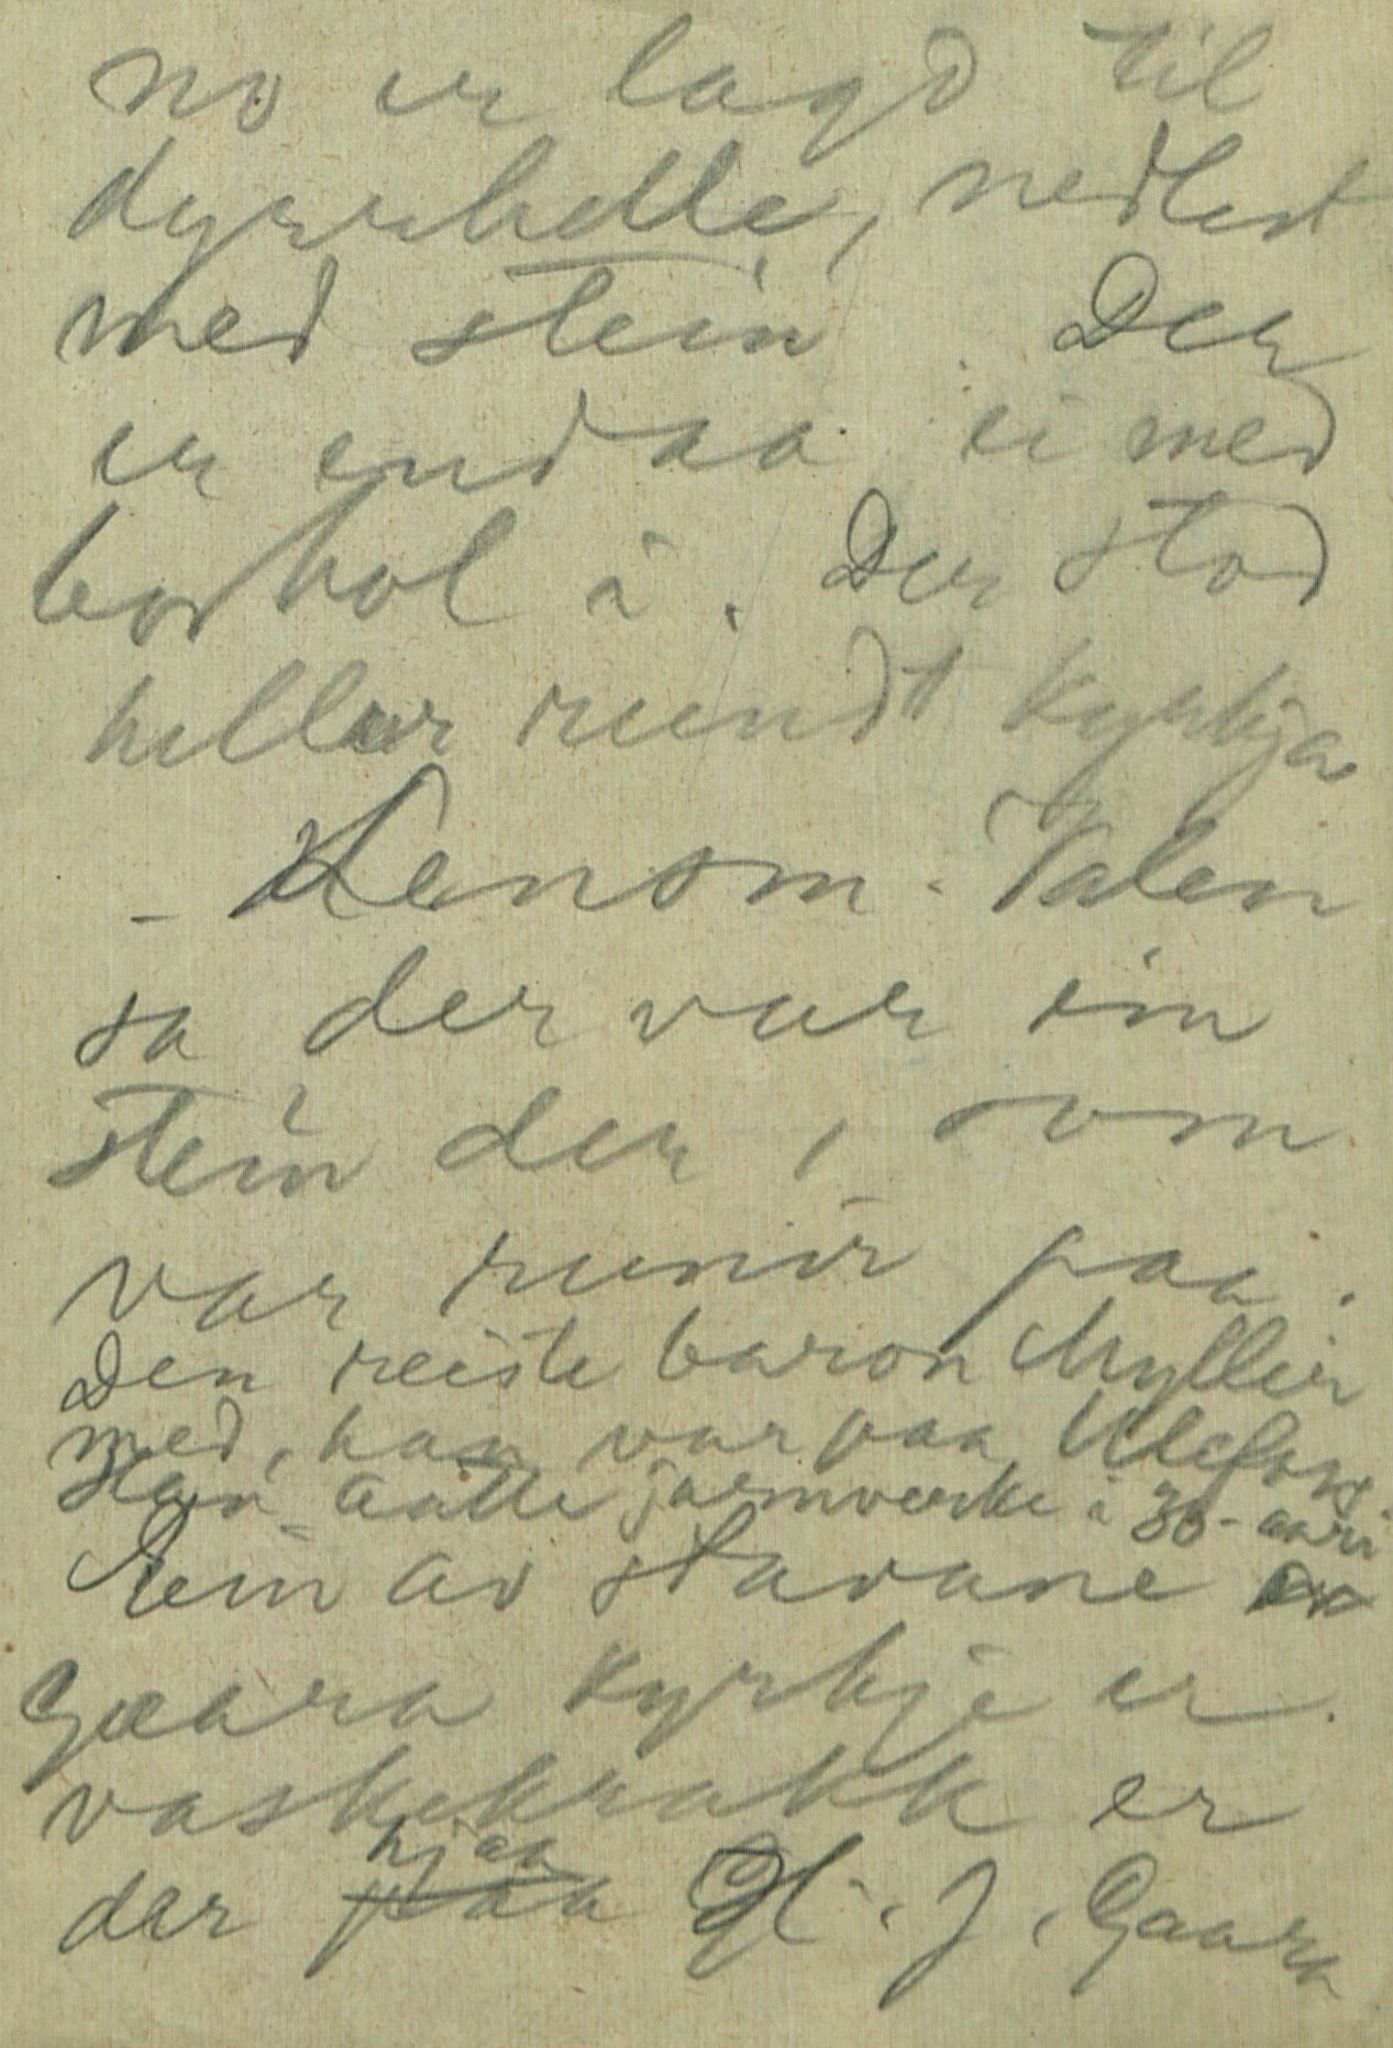 no er lagd til
dyrrhelle, nedlest
med stein. Der
er endaa ei med
borhol i. Der stod
hellur rundt kyrkja
- Lensm. Valen
sa der var ein
stein der, som
var runir paa.
Den reiste baron Myllier
med, han var paa Ulefoss.
Han aatte jarnverke i 30-aari
Ein av stavane
Gaara kyrkje er.
vaskekrakk er
der hjaa H. J. Gaara